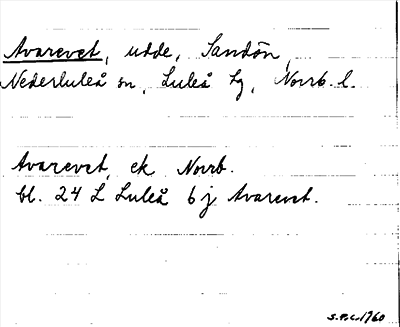 Avarevet, udde, Sandön,
Nederluleå sn, Luleå tg, Norrb. l.
Avarevet, ek Norrb.
bl. 24 L Luleå 6 j Avarevet.
S.P.C. 1760